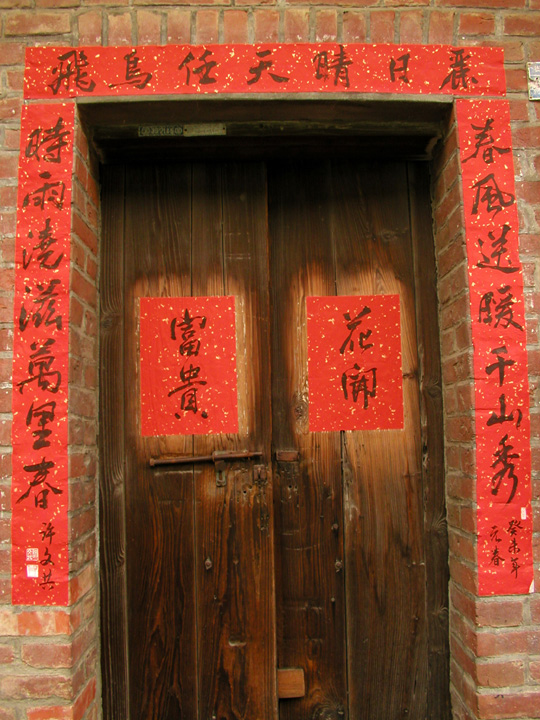 麗日晴天任鳥飛
春風送暖千山秀
癸未年
元春
時雨澆滋萬里春
許文共
花開
富貴